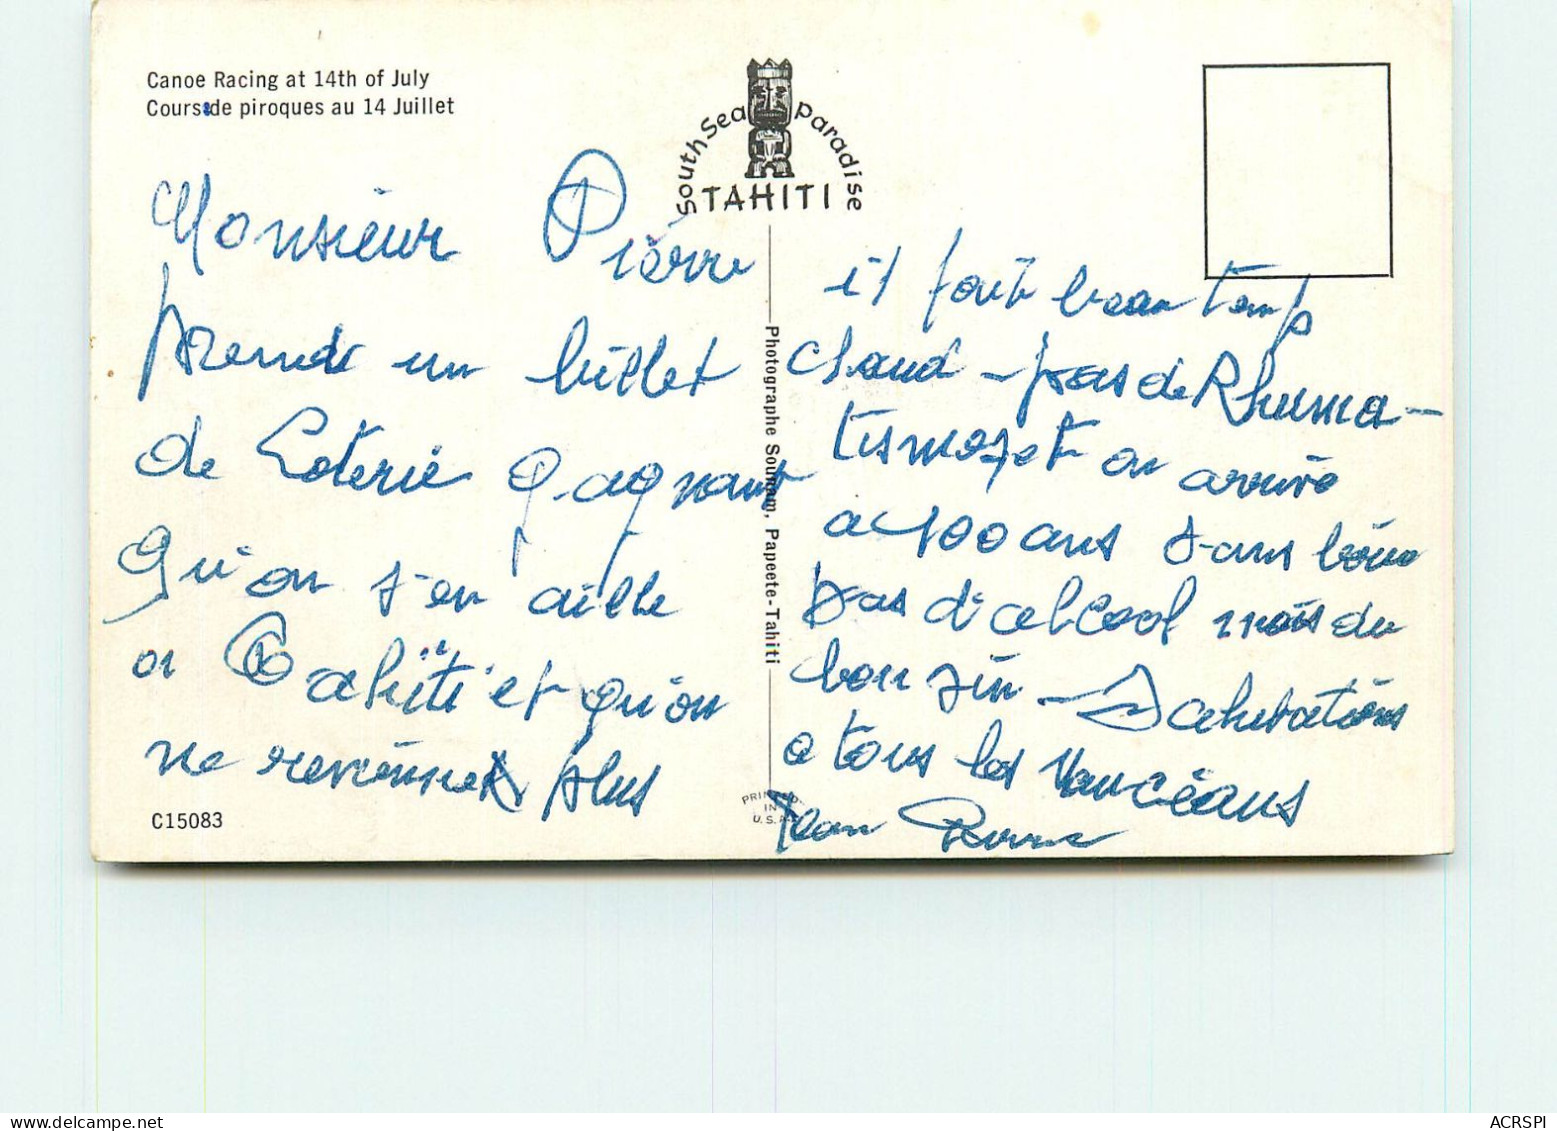 Canoe Racing at 14th of July
Cours de piroques au 14 Juillet
South Sea Paradise
TAHITI
Monsieur Pierre
prends un billet
de Loterie gagnant
qu'on s'en aille
a Tahiti et qu'on
ne revienne plus
C15083
Photographe Sounam, Papeete-Tahiti
PRINTED
IN
U.S.A.
il fait beau temps
chaud - pas de Rhuma-
tismes et on arrive
a 100 ans sans
pas d'alcool mais du
bon - Salutations
a tous les
Jean Pierre
www.delcampe.net
ACRSPI